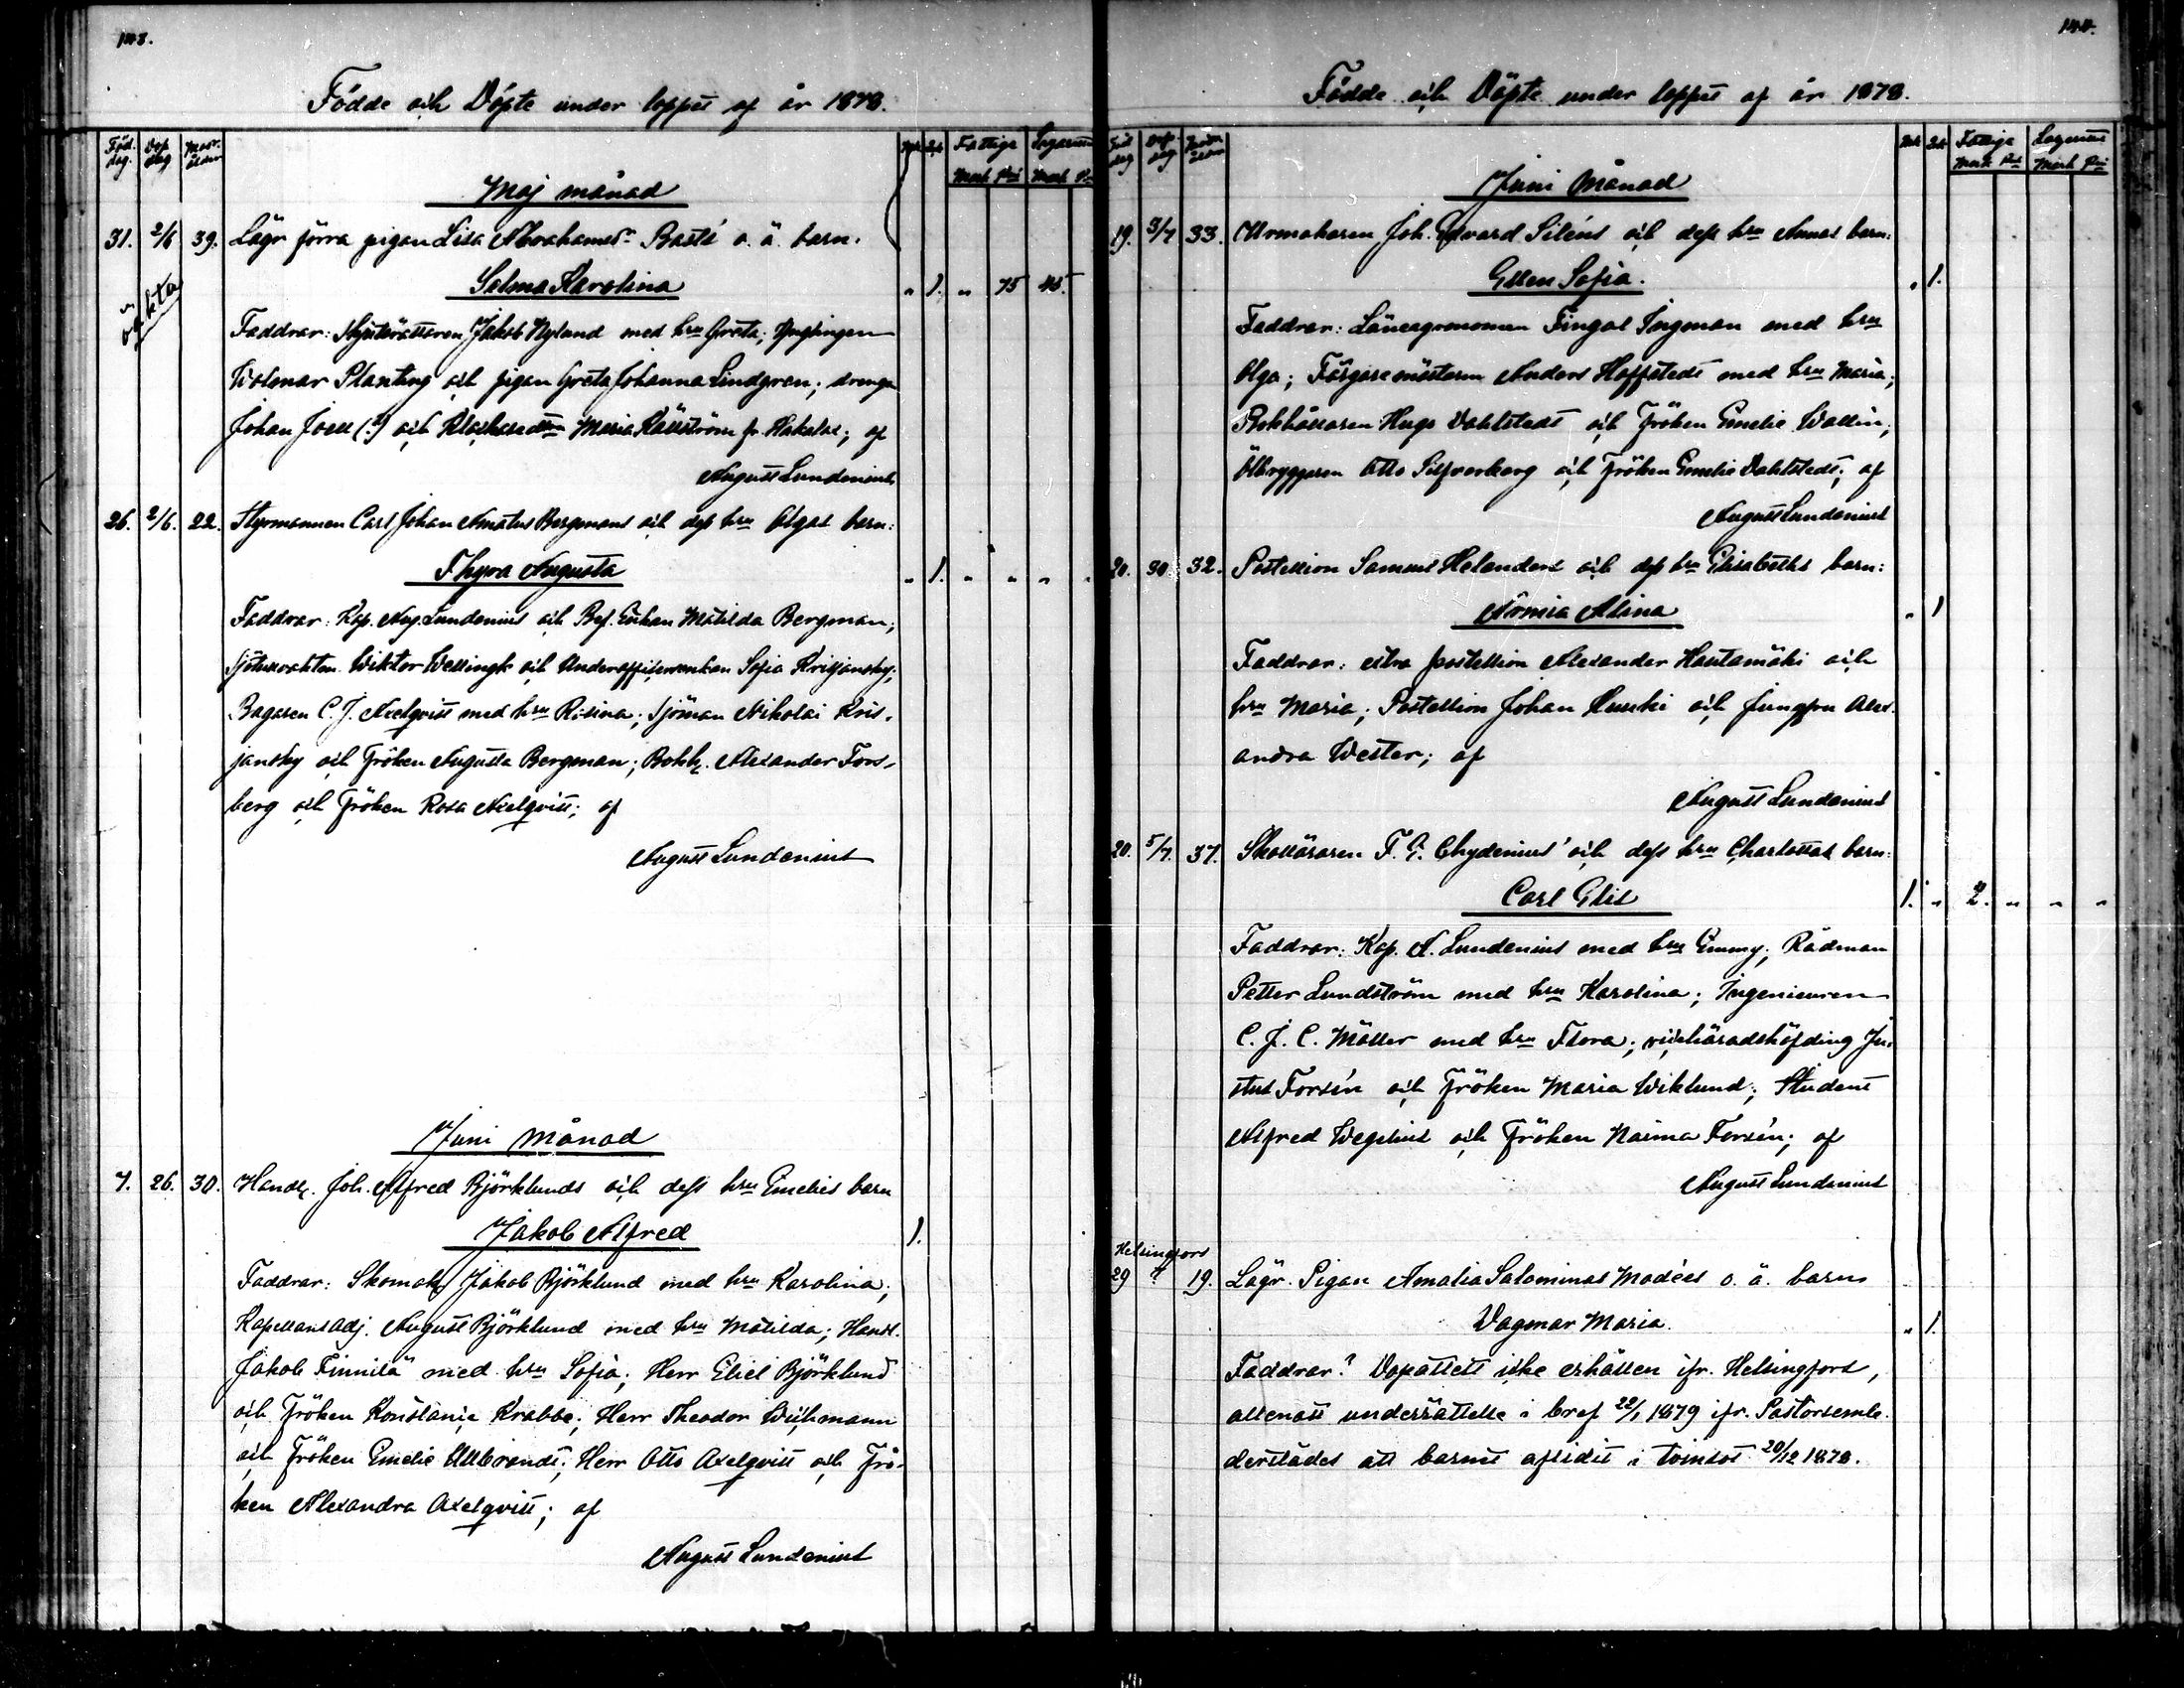 143.
Födde och Döpte under loppet af år 1878.
Föd. dag. Dop dag Modr. ålder Mk Qk Fattige Mark Pni Lägerm Mark
Maj månad
31. 2/6 39. Lägr förra pigan Lisa Abrahamsd:r Basts o. ä. barn.
oäkta
Selma Karolina " 1. " 75 45.
Faddrar: Skjutsrättaren Jakob Nylund med hru Greta; Ynglingen
Wolmar Planting och pigan Greta Johanna Lindgren; drengen
Johan Joell (?) och Maria Källström fr. Hakalax; af
August Lundenius
26. 2/6. 22. Styrmannen Carl Johan Amatus Bergmans och dess hru Olgas barn:
Thyra Augusta " 1. " " " "
Faddrar: Kap. Aug. Lundenius och Bef. Enkan Matilda Bergman;
Wiktor Wellingk och Underofficersenkan Sofia Krisjansky;
Bagaren C. J. Axelqvist med hru Risina; Sjöman Nikolai Kris-
jansky och Fröken Augusta Bergman; Bokh. Alexander Fors-
berg och Fröken Rosa Axelqvist; af
August Lundenius
Juni månad
7. 26. 30. Handl. Joh. Alfred Björklunds och dess hru Emelies barn
Jakob Alfred 1.
Faddrar: Skomak. Jakob Björklund med hru Karolina;
Kapellansadj. August Björklund med hru Matilda; Handl.
Jakob Finnilä med hru Sofia; Herr Eliel Björklund
och Fröken Konstancie Krabbe; Herr Theodor Wichmann
och Fröken Emelie Ullbrandt; Herr Otto Axelqvist och Frö-
ken Alexandra Axelqvist; af
August Lundenius
144.
Födde och Döpte under loppet af år 1878.
Föd dag Dop dag Modr. ålder Mk Qk Fattige Mark Pni Lägerm Mark Pni
Juni Månad
19. 3/7 33. Urmakaren Joh. Edvard Siléns och dess hru Annas barn:
Ellen Sofia. " 1.
Faddrar: Länsagronomen Fingal Ingman med hru
Olga; Färgaremästaren Anders Hoffstedt med hru Maria;
Bokhållaren Hugo Dahlstedt och Fröken Emelie Wallin;
Ölbryggaren Otto Silfverberg och Fröken Emelie Dahlstedt; af
August Lundenius
20. 30 32. Postillion Samuel Helanders och dess hru Elisabeths barn:
Armia Alina " 1
Faddrar: extra postillion Alexander Hautamäki och
hru Maria; Postillion Johan och Jungfru Alex-
andra Wester; af
August Lundenius
20. 5/7. 37. Skolläraren F. G. Chydenius' och dess hru Charlottas barn:
Carl Elis 1. " 2. " " "
Faddrar: Kap. A. Lundenius med hru Emmy; Rådman
Petter Lundström med hru Karolina; Ingenieuren
C. J. C. Möller med hru Flora; vicehäradshöfding Ju-
stus Forsén och Fröken Maria Wiklund; Student
Alfred Wegelius och Fröken Naima Forsén; af
August Lundenius
Helsingfors
29 ? 19. Lägr. Pigan Amalia Salominas Modées o. ä. barn
Dagmar Maria. " 1.
Faddrar? Dopattest icke erhållen ifr. Helsingfors,
allenast underrättelse i bref 22/1 1879 ifr. Pastorsemb.
derstädes att barnet aflidit i tvinsot 20/12 1878.